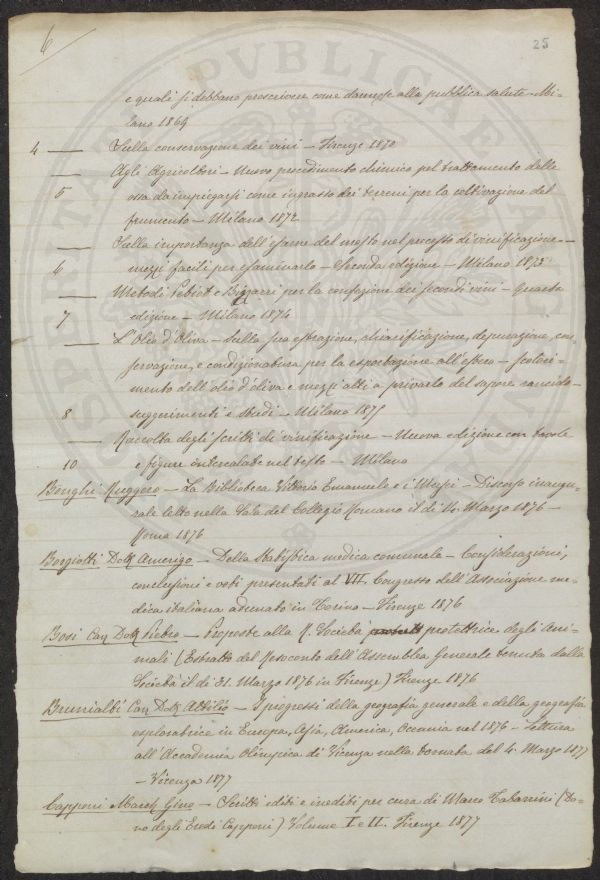 6
25
e quali si debbano proscrivere come dannose alla pubblica salute - Mi-
lano 1869
4 — Sulla conservazione dei vini — Firenze 1870
— Agli Agricoltori — Nuovo procedimento chimico pel trattamento delle
5 ossa da impiegarsi come ingrasso dei terreni per la coltivazione del
frumento — Milano 1872
— Sulla importanza dell'esame del mosto nel processo di vinificazione —
6 mezzi facili per esaminarlo — Seconda edizione — Milano 1873
— Metodi Petiot e Bizzarri per la confezione dei secondi vini — quarta
7 edizione — Milano 1874
— L'Olio d'Oliva — Sulla sua estrazione, chiarificazione, depurazione, con
servazione, e condizionatura per la esportazione all'estero — scolori-
mento dell'olio d'oliva e mezzi atti a privarlo del sapore rancido —
8 suggerimenti e studi — Milano 1875
— Raccolta degli scritti di vinificazione — Nuova edizione con tavole
10 e figure intercalate nel testo — Milano
Bonghi Ruggero — La Biblioteca Vittorio Emanuele e i Musei — Discorso inaugu-
rale letto nella Sala del Collegio Romano il dì 14 Marzo 1876 —
Roma 1876
Borgiotti Dott Amerigo — Della Statistica medica comunale — Considerazioni,
conclusioni e voti presentati al VII. Congresso dell'Associazione me-
dica italiana adunato in Torino — Firenze 1876
Bosi Cav Dott Pietro — Proposte alla R. Società protettrice degli Ani-
mali (Estratto dal Resoconto dell'Assemblea Generale tenuta dalla
Società il dì 31. Marzo 1876 in Firenze) Firenze 1876
Brunialti Cav Dott Attilio — I progressi della geografia generale e della geografia
esploratrice in Europa, Asia, America, Oceania nel 1876 — Lettura
all'Accademia Olimpica di Vicenza nella tornata del 4. Marzo 1877
— Vicenza 1877
Capponi March Gino — Scritti editi e inediti per cura di Marco Tabarrini (Do-
no degli Eredi Capponi) Volume I e II. Firenze 1877